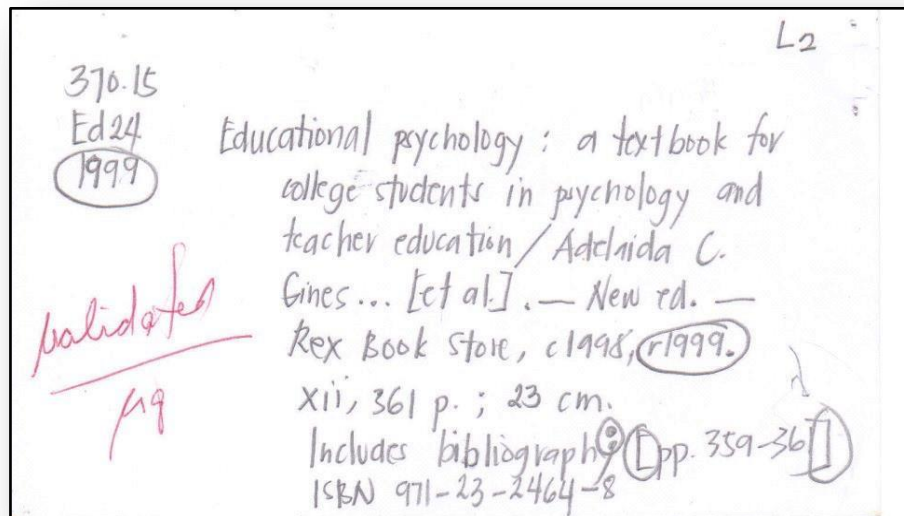 L2
370.15
Ed24
1999
Educational psychology : a textbook for
college students in psychology and
teacher education / Adelaida C.
Gines... [et al.]. — New ed. —
Rex Book Store, c1998, r1999.
xii, 361 p. ; 23 cm.
Includes bibliography: [pp. 359-36]
ISBN 971-23-2464-8
validated